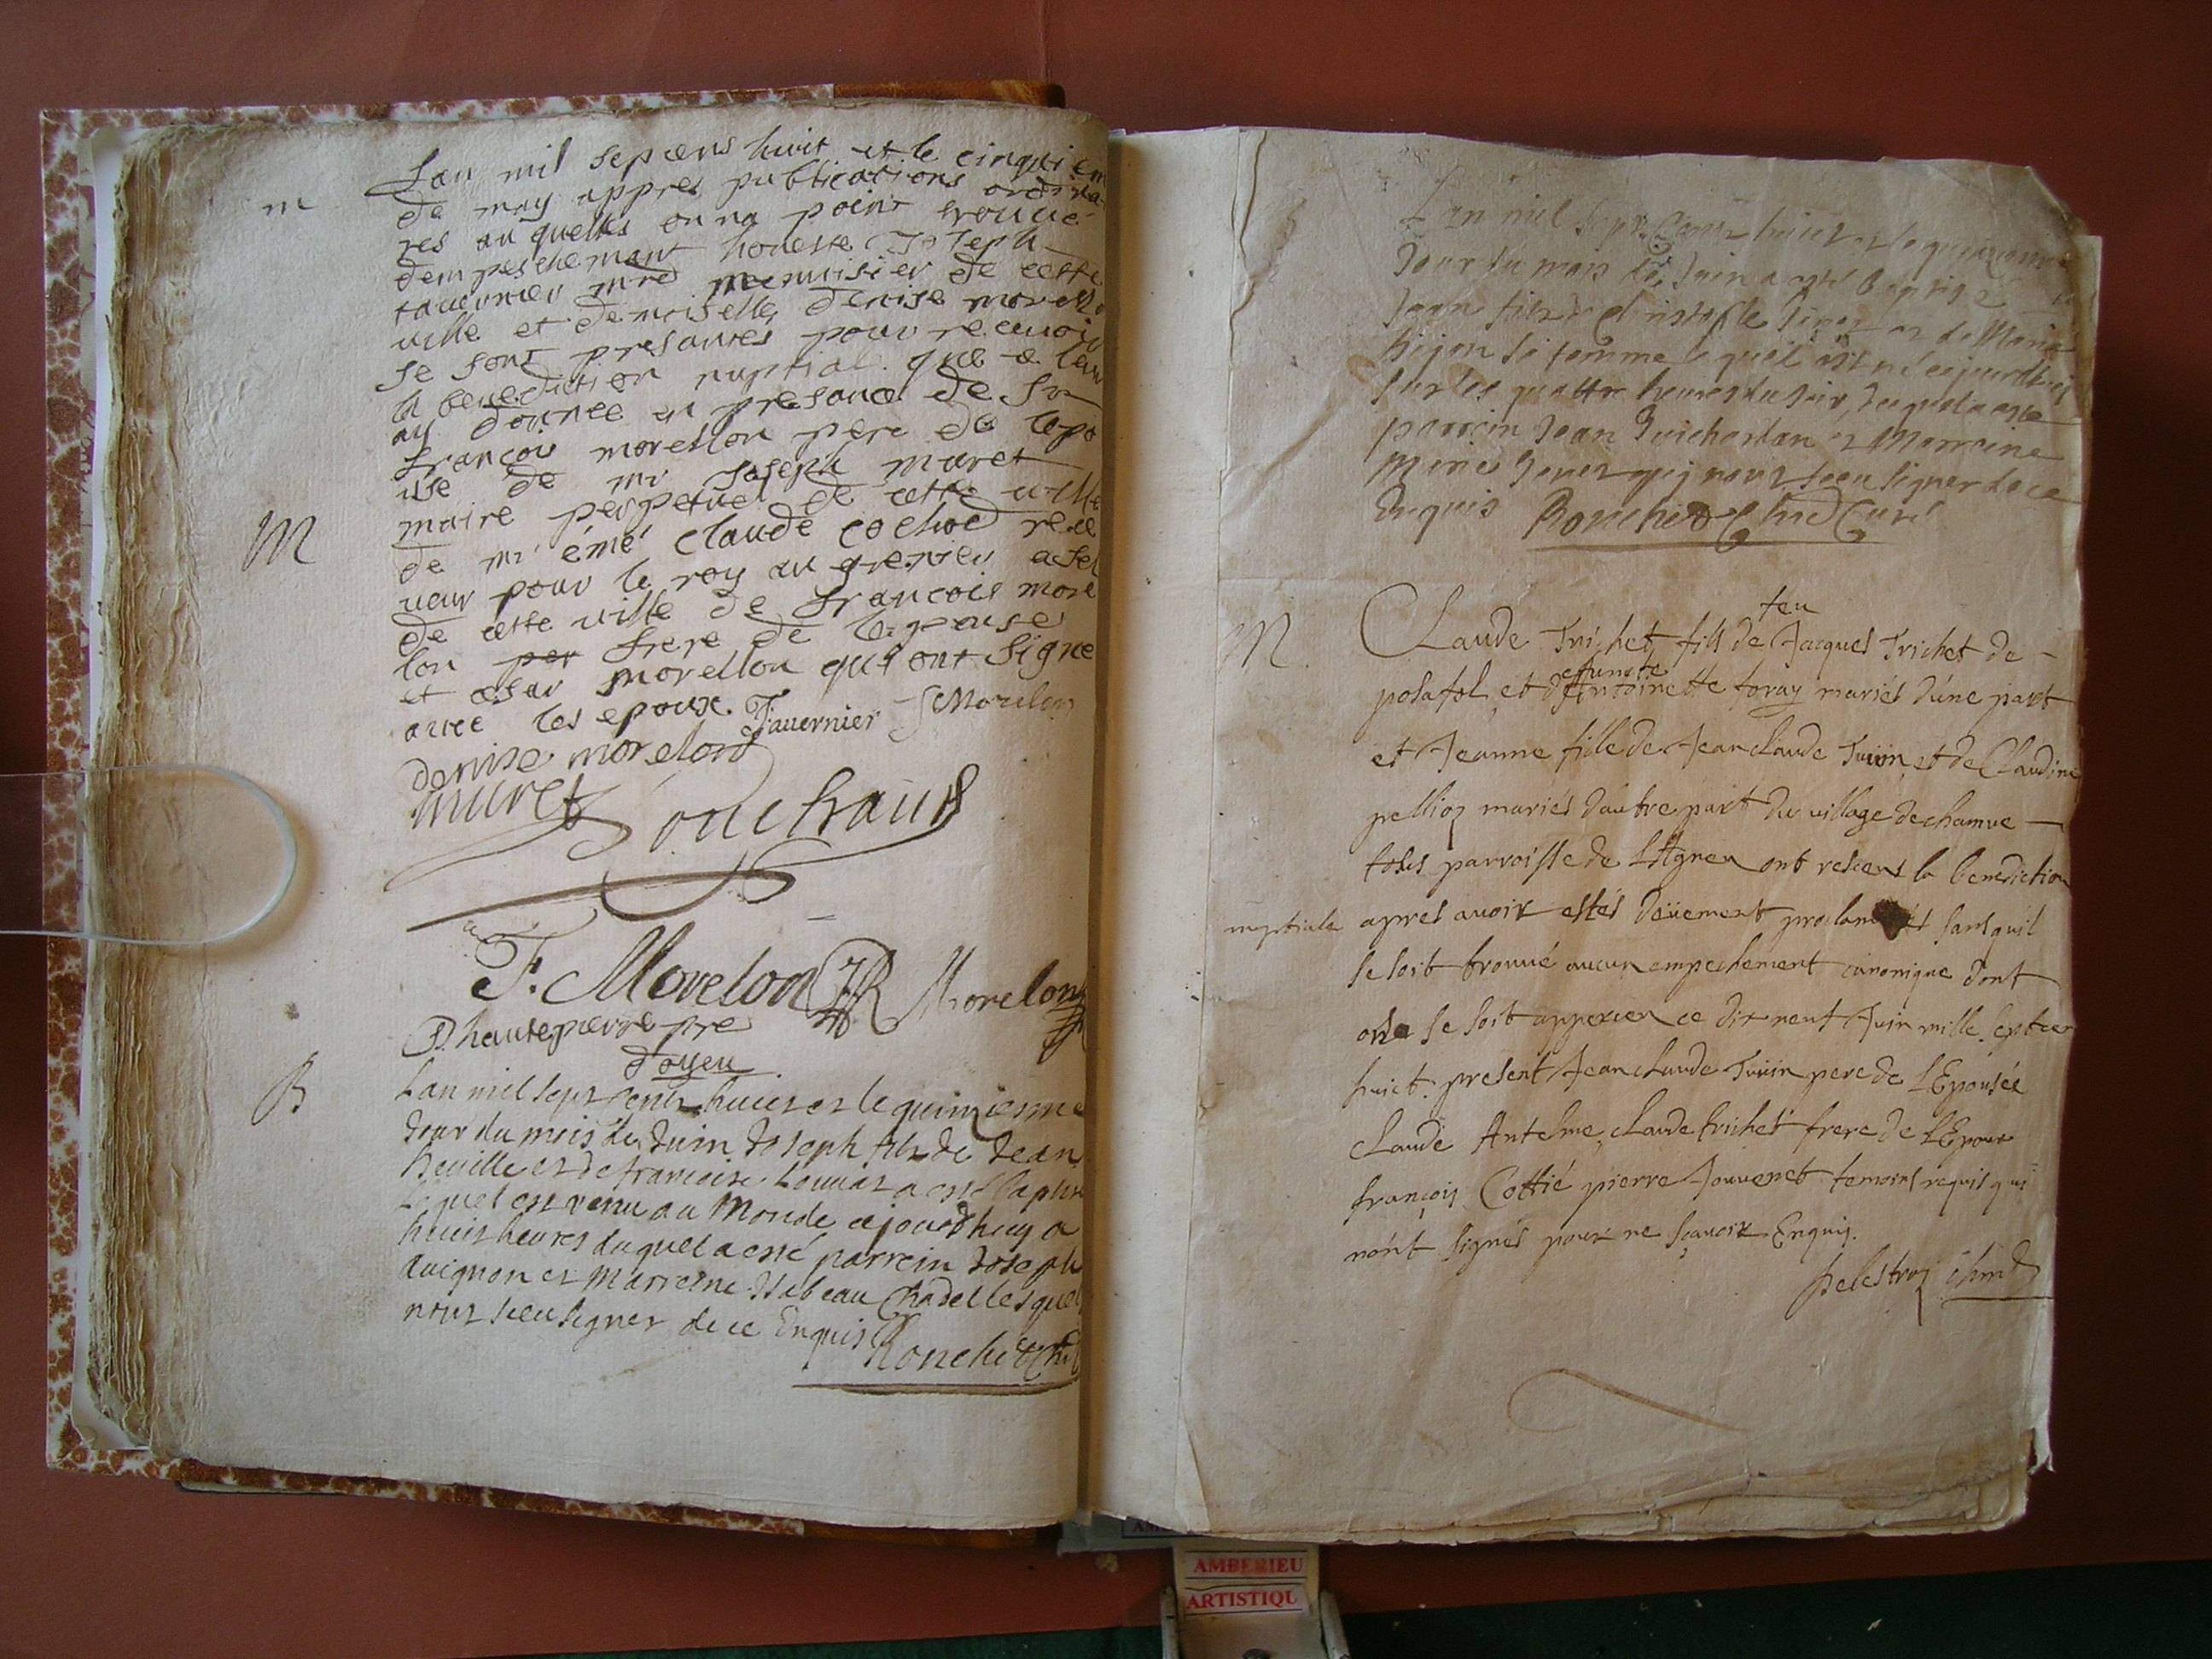 m
Lan mil sepcens huit et le cinquiem
de may appres publications ordina
res au quelles on na point trouué
dempeschemant honeste Joseph
tauernier mre menuisier de cette
uille et demoiselle denise morello
se sont presantés pour receuoir
la benediction nuptial que ie leur
ay donnée en presance de sr
françois morellon pere de lepo
use de mr Joseph muret
maire perpetuel de cette uille
M
de mr émé claude cochod rece
ueur pour le roy au grenier a sel
de cette uille de françois morel
lon per frere de lepouse
et cesar morellon qui ont signe
auec les epoux. Tauernier
denise morelond
muret
F. Morelon Morelon
D hautepierre pre
doyen
B
Lan mil sept cents huict et le quinziesme
Jour du mois de Juin Joseph fils de Jean
et de francoise a esté baptise
Lequel est venu au Monde cejourdhuy a
huict heures duquel a esté parrein Joseph
auignon et Marreine Isabeau lesquels
nont sceu signer de ce Enquis
Ronchet
Lan mil sept Cents huict et le quinziesme
Jour du mois de Juin a esté Baptisé
Jean fils de et de Marie
sa femme lequel est né cejourdhuy
sur les quattre heures du soir, duquel a esté
parrein Jean Guichardan et Marreine
Marie qui nont sceu signer de ce
Enquis Ronchet Curé
M.
feu
Claude Trichet fils de Jacques Trichet de
defuncte
posafol et dantoinette foray mariés dune part
et Jeanne fille de Jean Claude Juuin et de Claudine
pellioz mariés dautre part du village de chamue
tolus parroisse de Lagneu ont reseus la benediction
nuptiale apres auoir estés deüement proclamés sans quil
se soit trouué aucun empechement canonique dont
on se soit apperceu ce dix neuf Juin mille septcen
huict. present Jean Claude Juuin pere de L'Epousée
Claude Antelme, claude trichet frere de L'Epoux
françois Cottié pierre Jouuenet temoins requis qui
n'ont signés pour ne sçauoir Enquis.